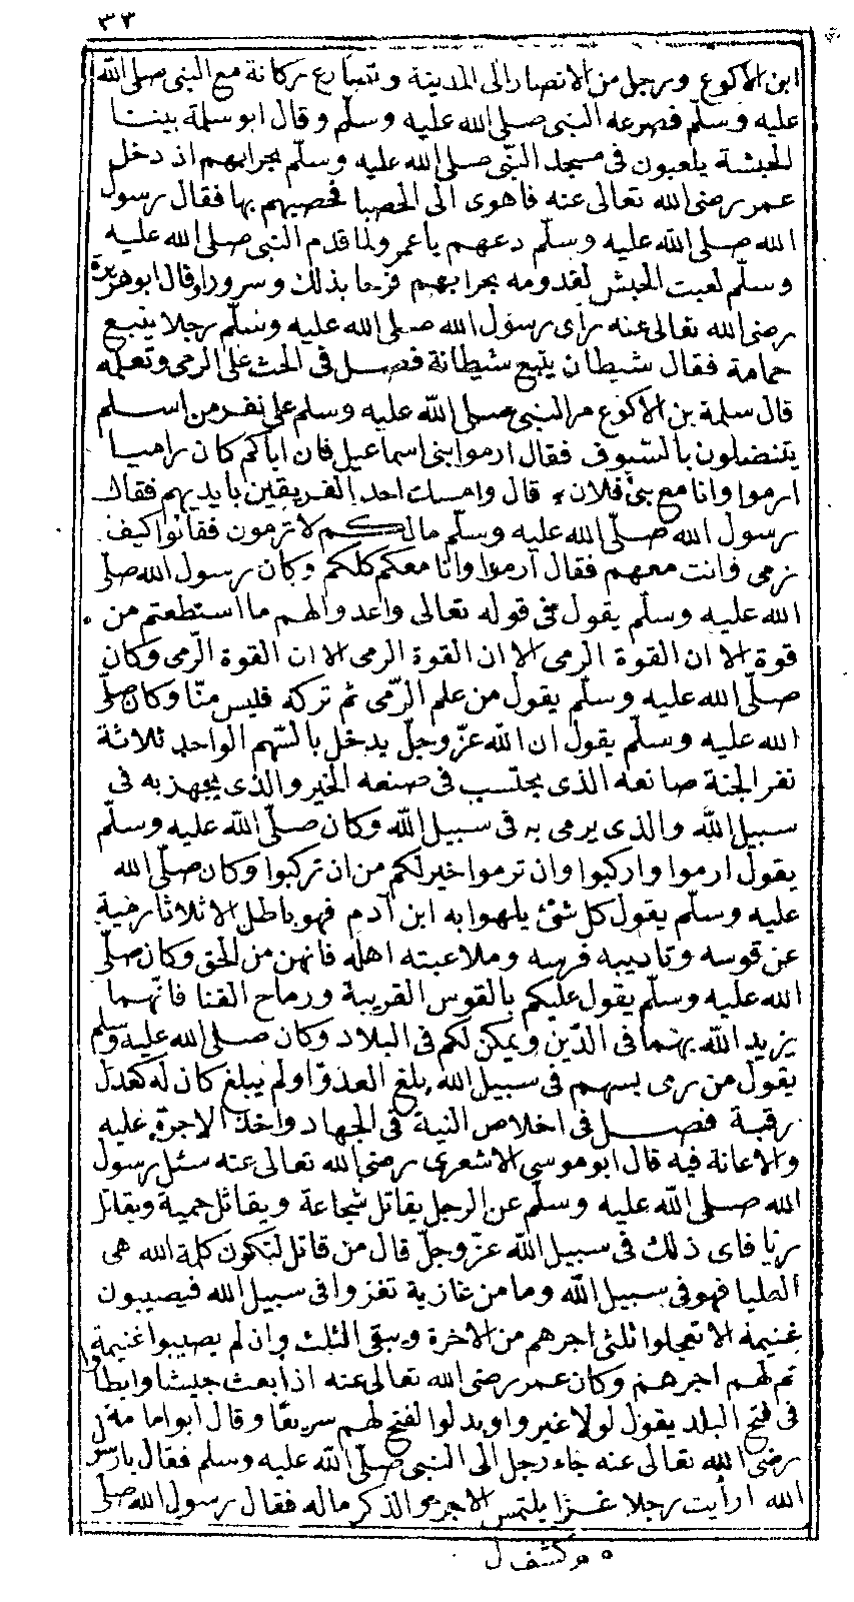 ٣٣
ابن الاكوع ورجل من الانصار الى المدينة وتصارع ركانة مع النبى صلى الله
عليه وسلّم فصرعه النبى صلى الله عليه وسلّم وقال ابو سلمة بينتا
الحبشة يلعبون فى مسجد النّبى صلى الله عليه وسلّم بحرابهم اذ دخل
عمر رضى الله تعالى عنه فاهوى الى الحصبا فحصبهم بها فقال رسول
الله صلى الله عليه وسلّم دعهم يا عمر ولما قدم النبى صلى الله عليه
وسلّم لعبت الحبش لقدومه بحرابهم فرحا بذلك وسرورا وقال ابو هريرة
رضى الله تعالى عنه رأى رسول الله صلى الله عليه وسلّم رجلا يتبع
حمامة فقال شيطان يتبع شيطانة فصل فى الحث على الرمى وتعلمه
قال سلمة بن الاكوع مر النبى صلى الله عليه وسلم على نفر من اسلم
يتنضلون بالسّيوف فقال ارموا بنى اسماعيل فان اباكم كان راميا
ارموا وانا مع بنى فلان، قال وامسك احد الفريقين بايديهم فقال
رسول الله صلّى الله عليه وسلّم مالكم لا ترمون فقالوا كيف
نرمى وانت معهم فقال ارموا وانا معكم كلكم وكان رسول الله صلى
الله عليه وسلّم يقول فى قوله تعالى واعدوا لهم ما استطعتم من
قوة الا ان القوة الرمى الا ان القوة الرمى الا ان القوة الرّمى وكان
صلّى الله عليه وسلّم يقول من علم الرّمى ثم تركه فليس منّا وكان صلّى
الله عليه وسلّم يقول ان الله عزّ وجلّ يدخل بالسّهم الواحد ثلاثة
نفر الجنة صانعه الذى يحتسب فى صنعه الخير والذى يجهز به فى
سبيل الله والذى يرمى به فى سبيل الله وكان صلّى الله عليه وسلّم
يقول ارموا واركبوا وان ترموا خير لكم من ان تركبوا وكان صلّى الله
عليه وسلّم يقول كل شئ يلهوا به ابن آدم فهو باطل الا ثلاثا رمية
عن قوسه وتاديبه فرسه وملاعبته اهله فانهن من الحق وكان صلّى
الله عليه وسلّم يقول عليكم بالقوس القريبة ورماح القنا فانّهما
يزيد الله بهما فى الدّين ويمكن لكم فى البلاد وكان صلى الله عليه وسلم
يقول من رمى بسهم فى سبيل الله بلغ العدوّ اولم يبلغ كان له كعدل
رقبة فصل فى اخلاص النية فى الجهاد واخذ الاجرة عليه
والاعانة فيه قال ابو موسى الاشعرى رضى الله تعالى عنه سئل رسول
الله صلى الله عليه وسلّم عن الرجل يقاتل شجاعة ويقاتل حمية ويقاتل
ريا فاى ذلك فى سبيل الله عزّ وجلّ قال من قاتل لتكون كلمة الله هى
العليا فهو فى سبيل الله وما من غازية تغزوا فى سبيل الله فيصيبون
غنيمة الا تعجلوا ثلثى اجرهم من الاخرة ويبقى الثلث وان لم يصيبوا غنيمة
تم لهم اجرهم وكان عمر رضى الله تعالى عنه اذا بعث جيشا وابطأوا
فى فتح البلد يقول لولا غيروا وبدلوا لفتح لهم سريعا وقال ابو امامة
رضى الله تعالى عنه جاء رجل الى النبى صلى الله عليه وسلم فقال يا رسول
الله ارأيت رجلا غزا يلتمس الاجر والذكر ماله فقال رسول الله صلى